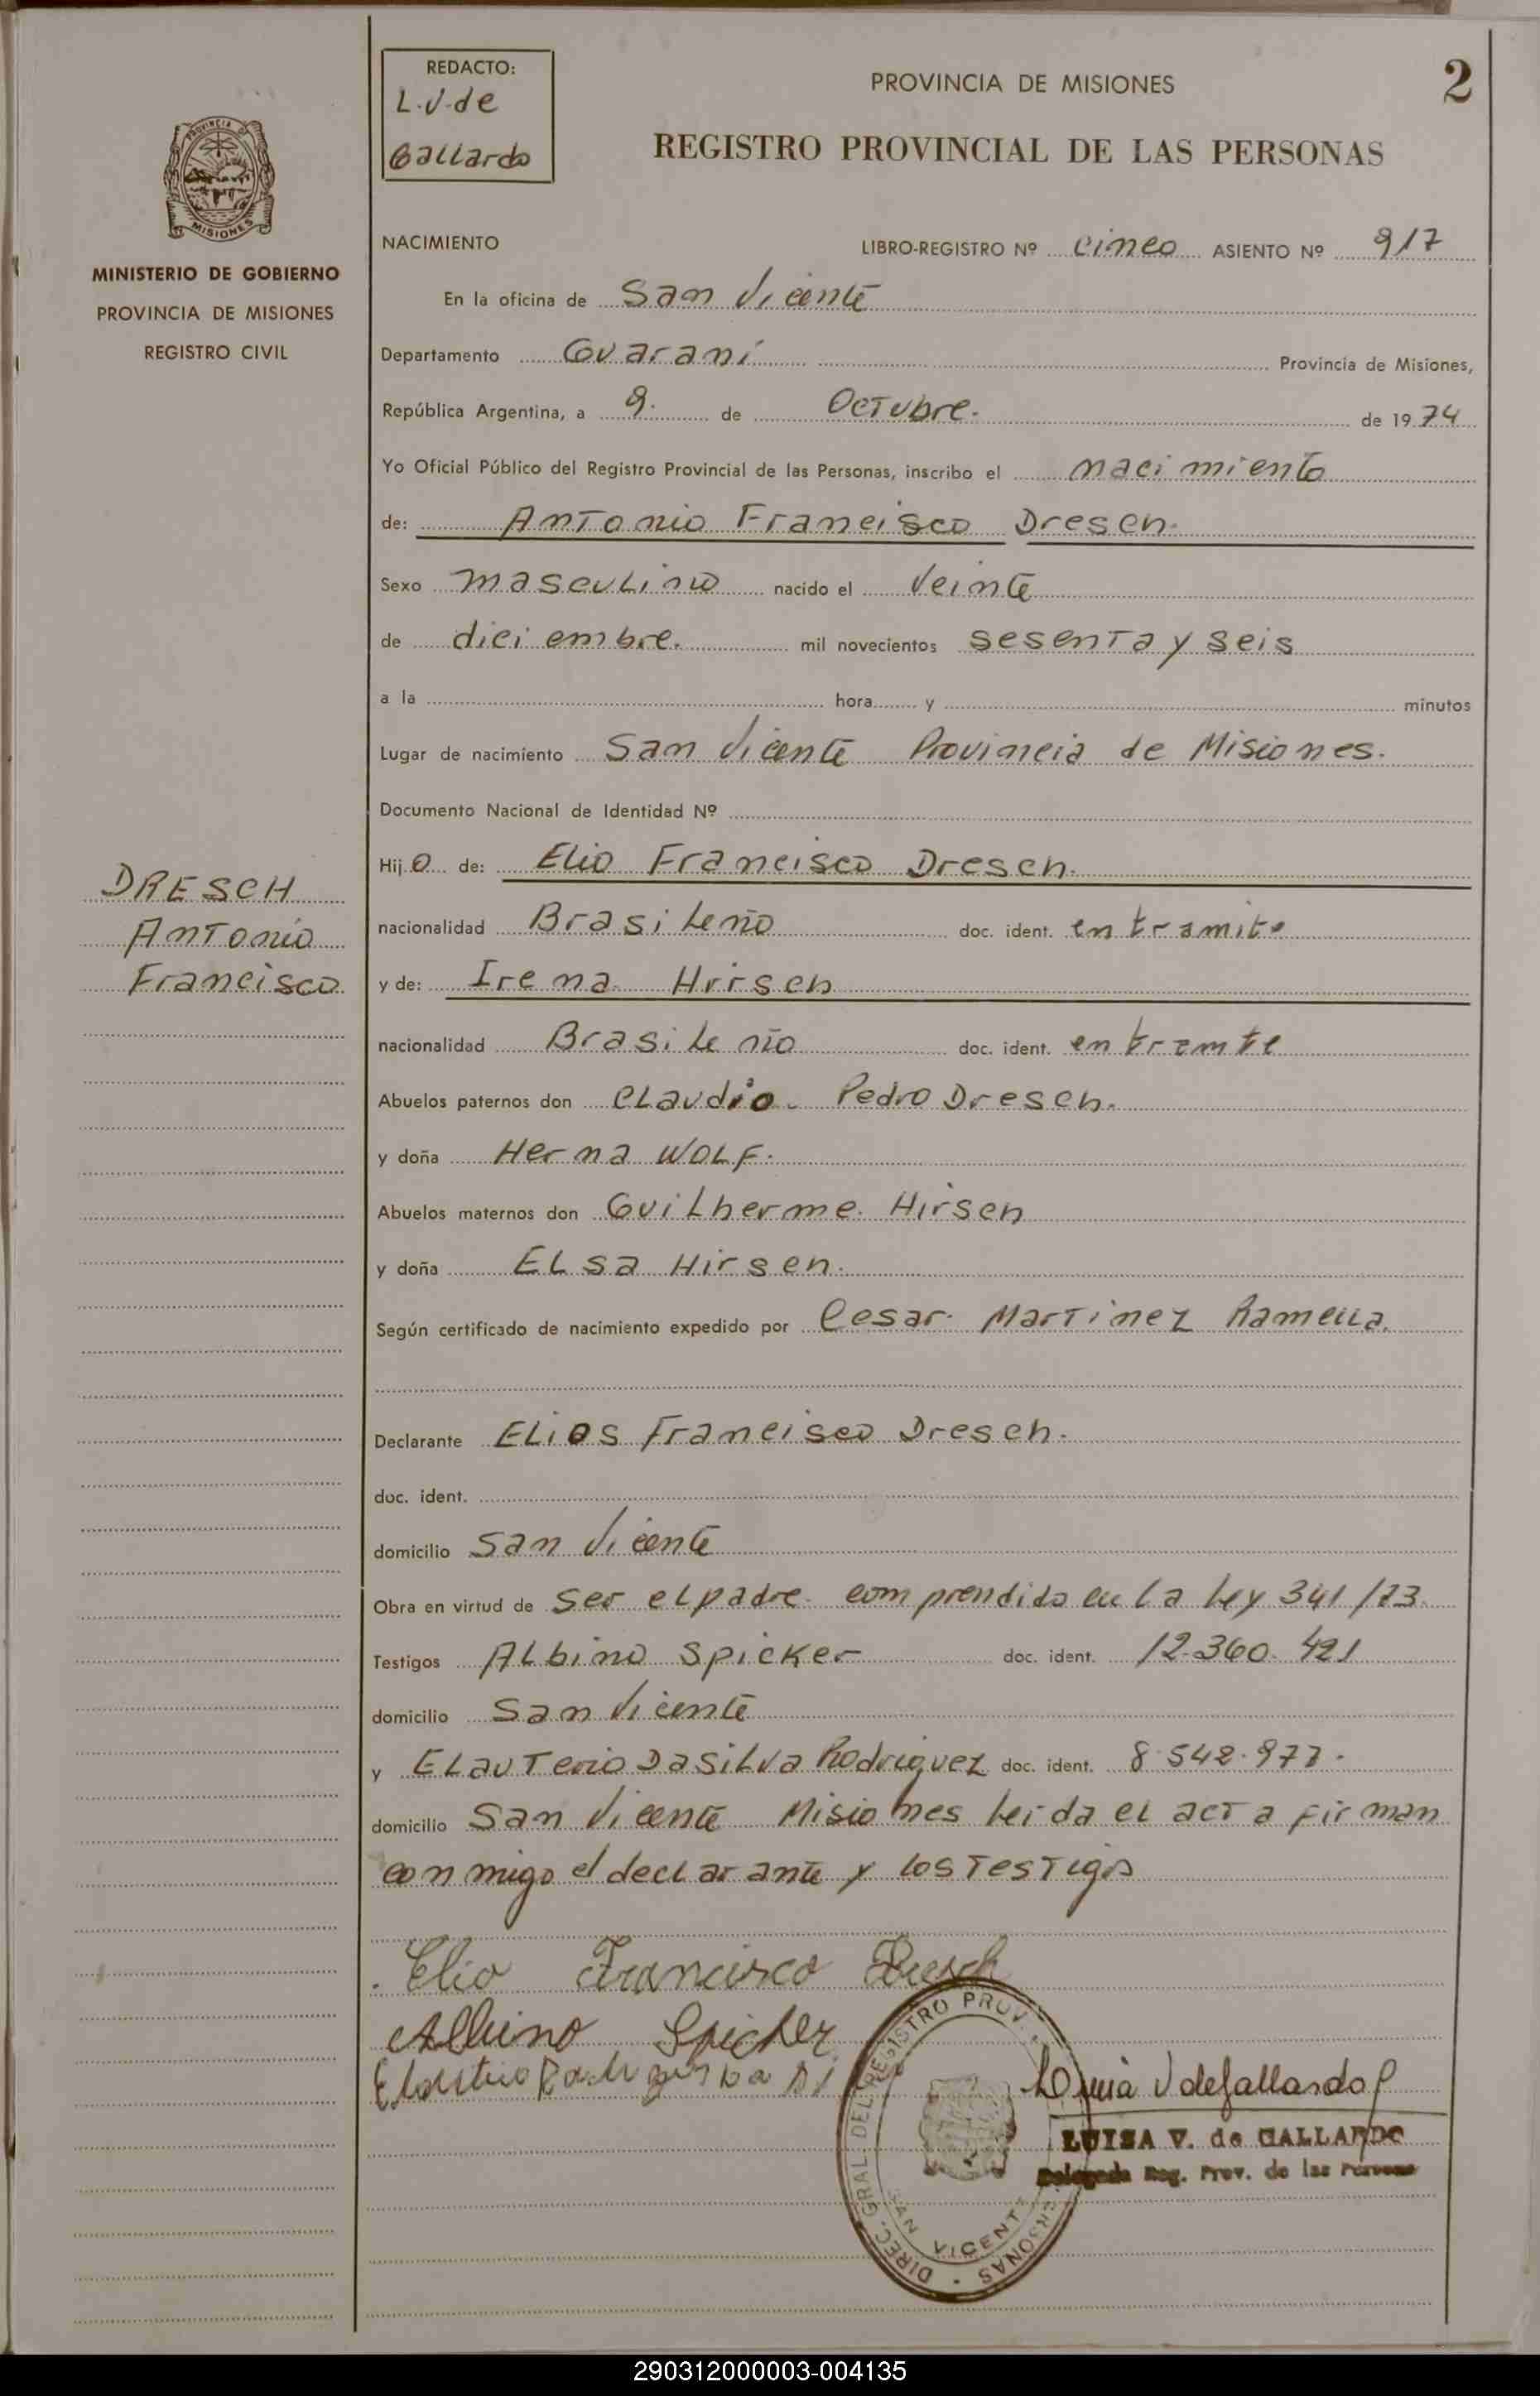 REDACTO:
L.V. de
Gallardo
2
PROVINCIA DE MISIONES
REGISTRO PROVINCIAL DE LAS PERSONAS
PROVINCIA DE
MISIONES
MINISTERIO DE GOBIERNO
PROVINCIA DE MISIONES
REGISTRO CIVIL
NACIMIENTO LIBRO-REGISTRO Nº cinco ASIENTO Nº 917
En la oficina de San Vicente
Departamento Guaraní Provincia de Misiones,
República Argentina, a 9. de Octubre. de 1974
Yo Oficial Público del Registro Provincial de las Personas, inscribo el nacimiento
de: Antonio Francisco Dresch.
Sexo masculino nacido el Veinte
de diciembre. mil novecientos sesenta y seis
a la hora y minutos
Lugar de nacimiento San Vicente Provincia de Misiones.
Documento Nacional de Identidad Nº
Hijo de: Elio Francisco Dresch.
DRESCH
Antonio
Francisco
nacionalidad Brasileño doc. ident. en tramite
y de: Irena Hirsch
nacionalidad Brasileño doc. ident. en tramte
Abuelos paternos don Claudio. Pedro Dresch.
y doña Herna WOLF.
Abuelos maternos don Guilherme. Hirsch
y doña ELsa Hirsch.
Según certificado de nacimiento expedido por Cesar. Martinez Ramella.
Declarante ELios Francisco Dresch.
doc. ident.
domicilio San Vicente
Obra en virtud de ser el padre. comprendido en la Ley 341/73.
Testigos Albino Spicker doc. ident. 12.360.421
domicilio San Vicente
y ELauterio DaSilva Rodriguez doc. ident. 8.542.977.
domicilio San Vicente Misiones leida el acta firman
conmigo el declarante y los testigos
Elio Francisco Dresch
Albino Spicker
DIREC. GRAL. DEL REGISTRO PROV. PERSONAS
SAN VICENTE
LUISA V. de GALLARDO
Delegada Reg. Prov. de las Personas
290312000003-004135